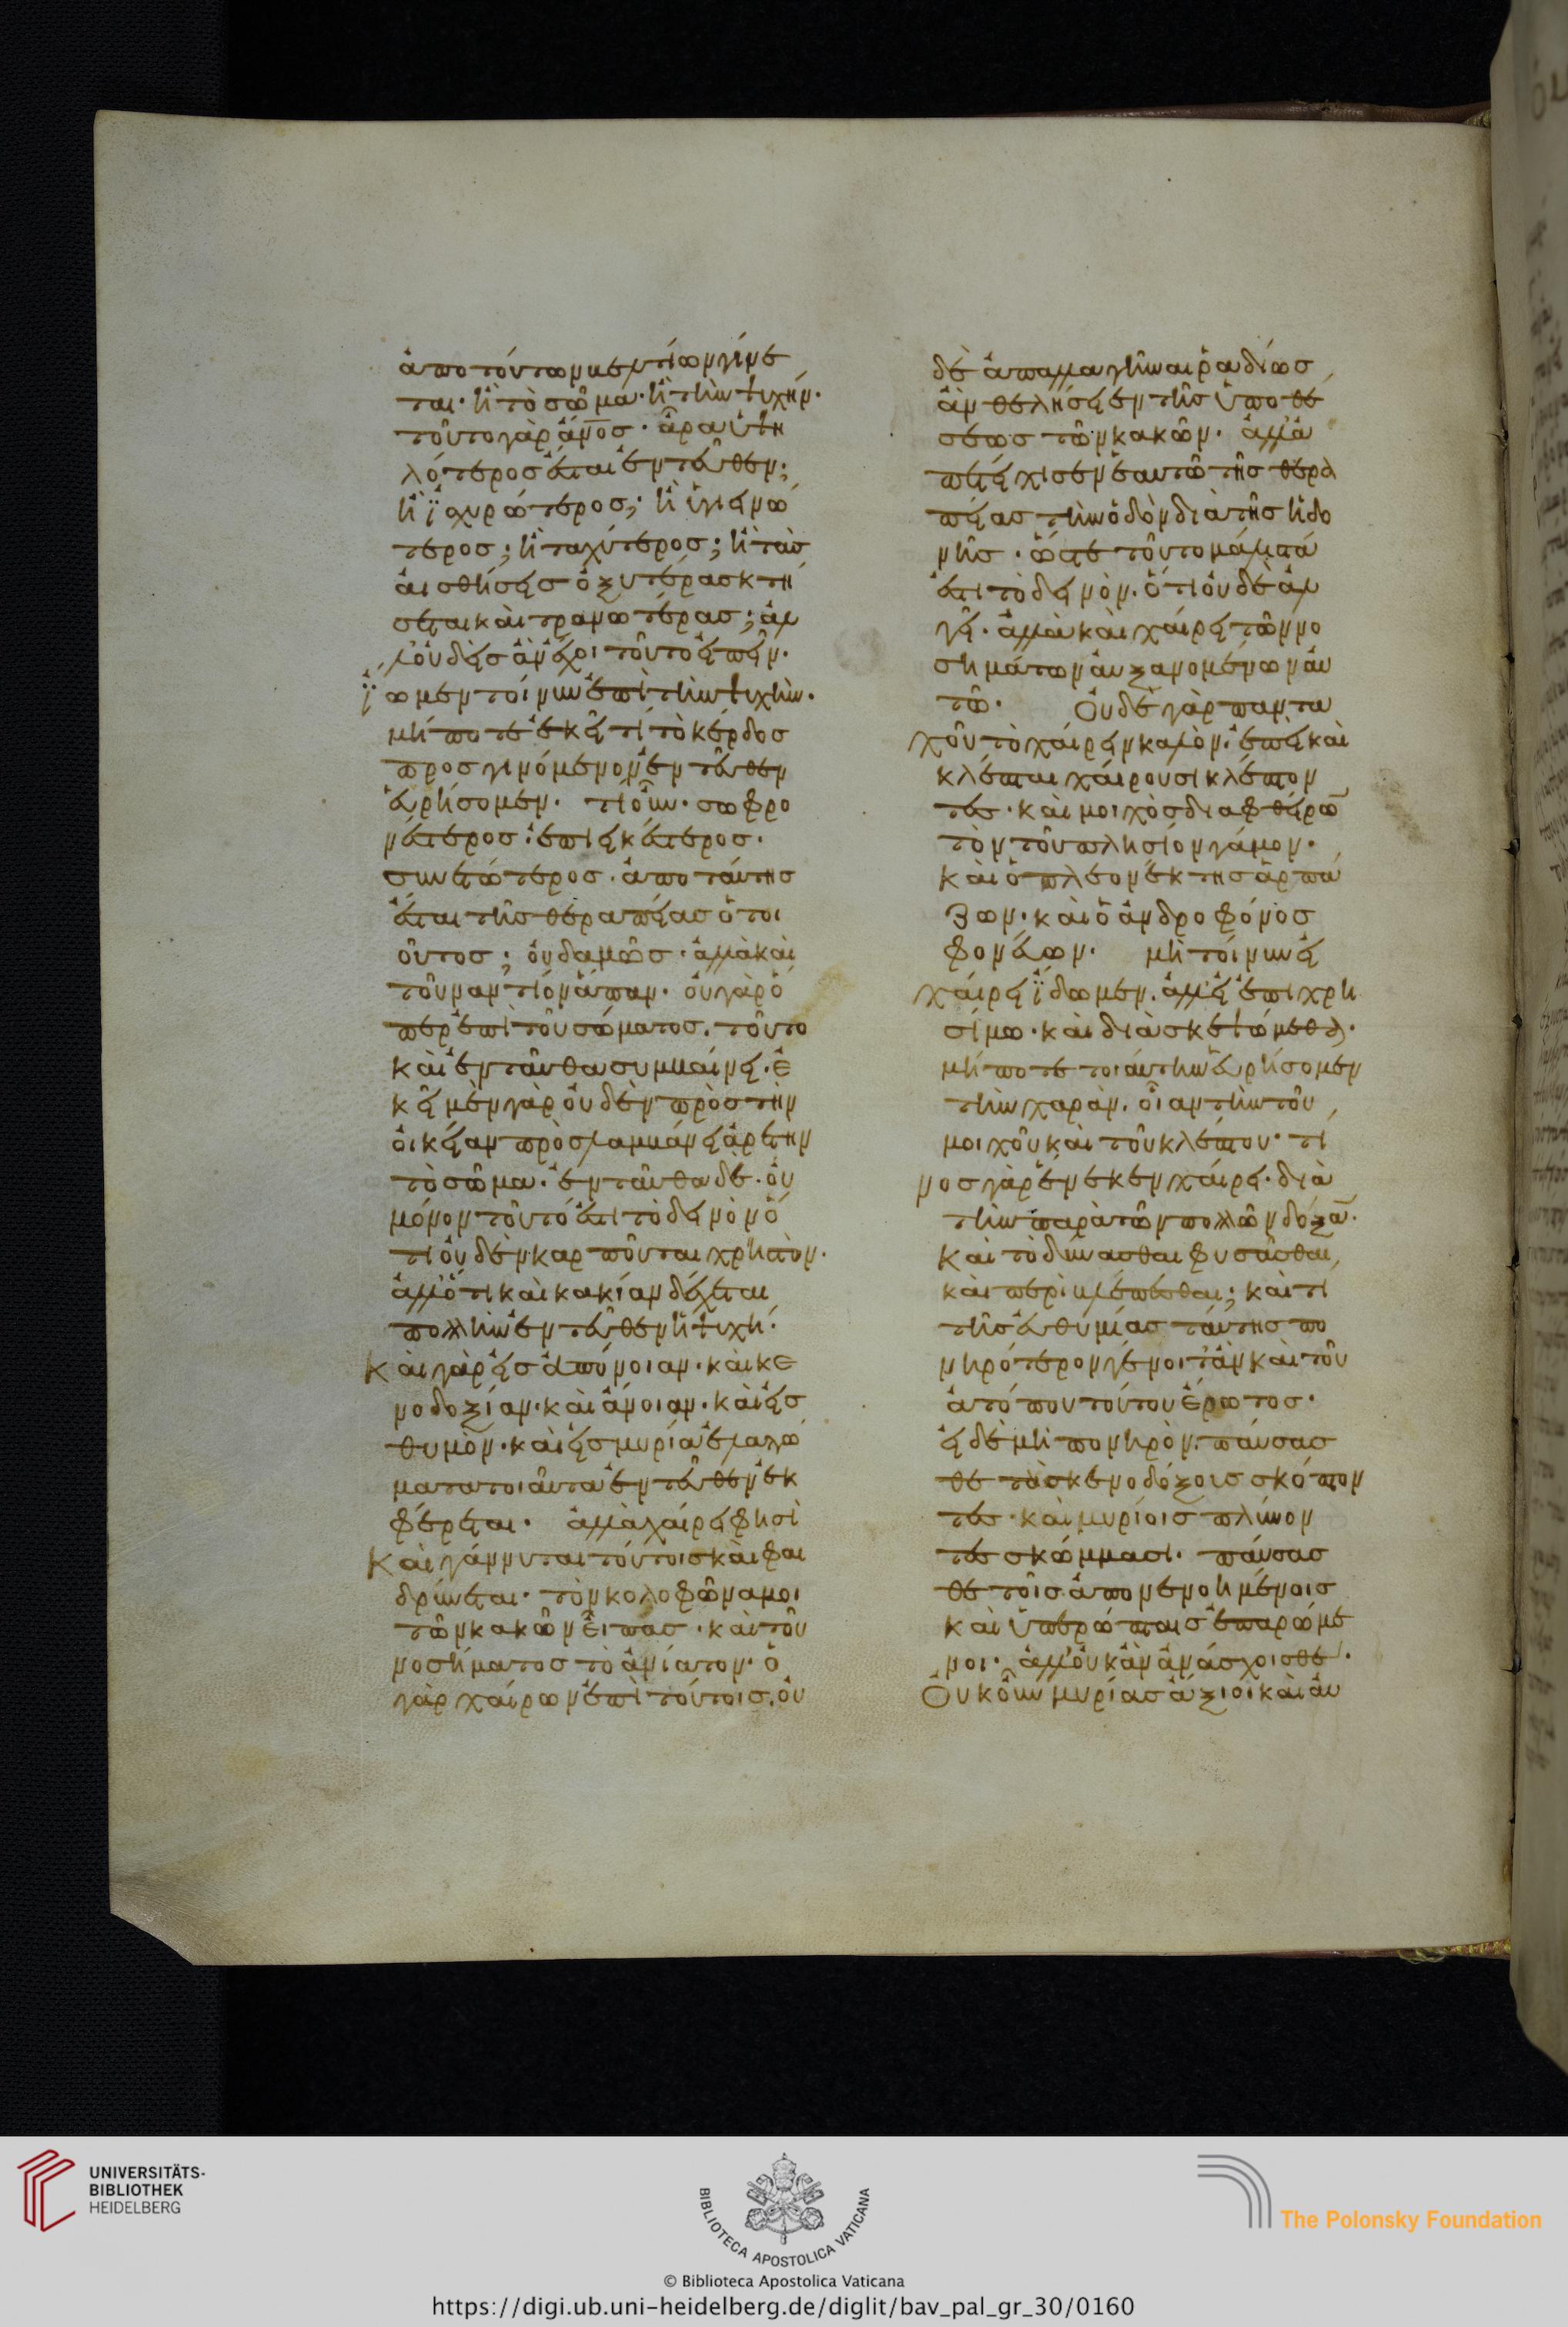 ἀπὸ τούτων βελτίων γίνε
ται. ἢ τὸ σῶμα. ἢ τὴν ψυχήν.
τοῦτο γὰρ ἄνος. ἆρα ὑψη
λότερος ἔσται ἐντεῦθεν;
ἢ ἰσχυρώτερος; ἢ ὑγιεινώ
τερος; ἢ ταχύτερος; ἢ τὰς
αἰσθήσεις ὀξυτέρας κτή
σεται καὶ τρανωτέρας; ἀλ
λ' οὐδεὶς ἂν ἔχοι τοῦτο εἰπεῖν.
ἴωμεν τοίνυν ἐπὶ τὴν ψυχὴν.
μήποτε ἐκεῖ τὶ τὸ κέρδος
προσγινόμενον ἐντεῦθεν
εὑρήσομεν. τί οὖν. σωφρο
νέστερος. ἐπιεικέστερος.
συνετώτερος. ἀπὸ ταύτης
ἔσται τῆς θεραπείας ὁ τοι
οῦτος; οὐδαμῶς. ἀλλὰ καὶ
τοὐναντίον ἅπαν. οὐ γὰρ ὅ
περ ἐπὶ τοῦ σώματος. τοῦτο
καὶ ἐνταῦθα συμβαίνει. ἐ
κεῖ μὲν γὰρ οὐδὲν πρὸς τὴν
οἰκείαν προσλαμβάνει ἀρετὴν
τὸ σῶμα. ἐνταῦθα δὲ. οὐ
μόνον τοῦτό ἐστι τὸ δεινὸν ὅ
τι οὐδὲν καρποῦται χρηστόν.
ἀλλ' ὅτι καὶ κακίαν δέχεται
πολλὴν ἐντεῦθεν ἡ ψυχή.
Καὶ γὰρ εἰς ἀπόνοιαν. καὶ κε
νοδοξίαν. καὶ ἄνοιαν. καὶ εἰς
θυμὸν. καὶ εἰς μυρία ἐλαττώ
ματα τοιαῦτα ἐντεῦθεν ἐκ
φέρεται. ἀλλὰ χαίρει φησὶ
Καὶ γάννυται τούτοις καὶ φαι
δρύνεται. τὸν κολοφῶνα μοι
τῶν κακῶν εἶπας. καὶ τοῦ
νοσήματος τὸ ἀνίατον. ὁ
γὰρ χαίρων ἐπὶ τούτοις. οὐ
δὲ ἀπαλλαγῆναι ῥαδίως
ἂν θελήσει ἐν τῆς ὑποθέ
σεως τῶν κακῶν. ἀλλὰ
ἐπετείχισεν ἑαυτῶ τῆς θερα
πείας τὴν ὁδὸν διὰ τῆς ἡδο
νῆς. ὥστε τοῦτο μάλιστά
ἐστι τὸ δεινόν. ὅτι οὐδὲ ἀλ
γεῖ. ἀλλὰ καὶ χαίρει τῶν νο
σημάτων αὐξανομένων αὐ
τῶ. Οὐδὲ γὰρ πανταχοῦ
τὸ χαίρειν καλὸν. ἐπεὶ καὶ
κλέπται χαίρουσι κλέπτον
τες. καὶ μοιχὸς διαφθείρων
τὸν τοῦ πλησίον γάμον.
καὶ ὁ πλεονέκτης ἁρπά
ζων. καὶ ὁ ἀνδροφόνος
φονεύων. μὴ τοίνυν εἰ
χαίρει ἴδωμεν. ἀλλ' εἰ ἐπὶ χρη
σίμω. καὶ διασκεψώμεθα.
μήποτε τοιαύτην εὑρήσομεν
τὴν χαρὰν. οἵαν τὴν τοῦ
μοιχοῦ καὶ τοῦ κλέπτου. τί
νος γὰρ ἕνεκεν χαίρει. διὰ
τὴν παρὰ τῶν πολλῶν δόξαν.
Καὶ τὸ δύνασθαι φυσᾶσθαι
καὶ περιβλέπεσθαι; καὶ τί
τῆς εὐθυμίας ταύτης πο
νηρότερον γένοιτ' ἂν καὶ τοῦ
ἀτόπου τούτου ἔρωτος.
εἰ δὲ μὴ πονηρὸν. παύσασ
θε τὰς κενοδόξοις σκόπτον
τες. καὶ μυρίοις πλύνον
τες σκώμμασι. παύσασ
θε τοῖς ἀπονενοημένοις
καὶ ὑπερόπταις ἐπαρώμε
νοι. ἀλλ' οὐκ ἂν ἀνάσχοισθε.
Οὐκοῦν μυρίας ἄξιοι καὶ αὐ
UNIVERSITÄTS-
BIBLIOTHEK
HEIDELBERG
BIBLIOTECA APOSTOLICA VATICANA
The Polonsky Foundation
© Biblioteca Apostolica Vaticana
https://digi.ub.uni-heidelberg.de/diglit/bav_pal_gr_30/0160